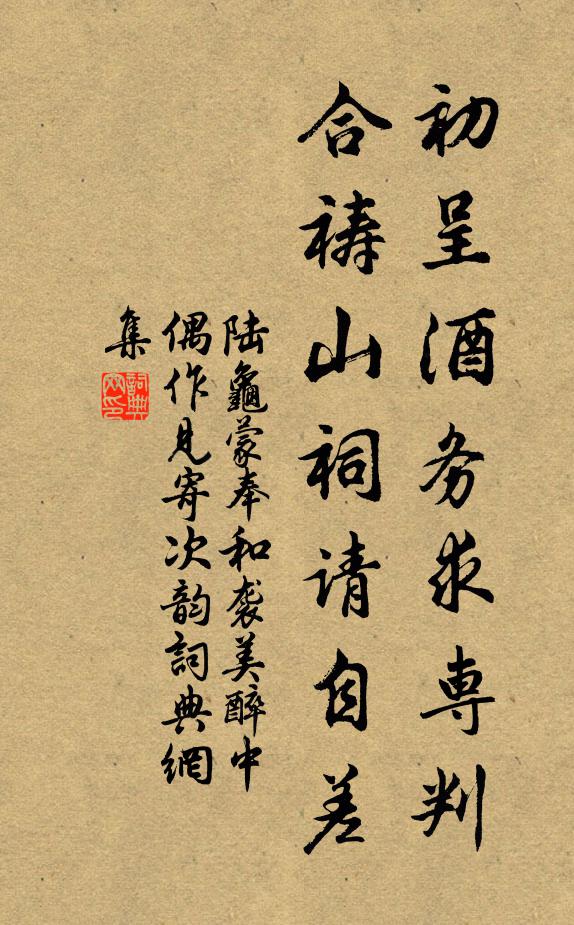 初呈酒务求専判
合祷山祠请自差
陆龜蒙奉和袭美醉中
偶作见寄次韵詞典網
集
詞典
网印